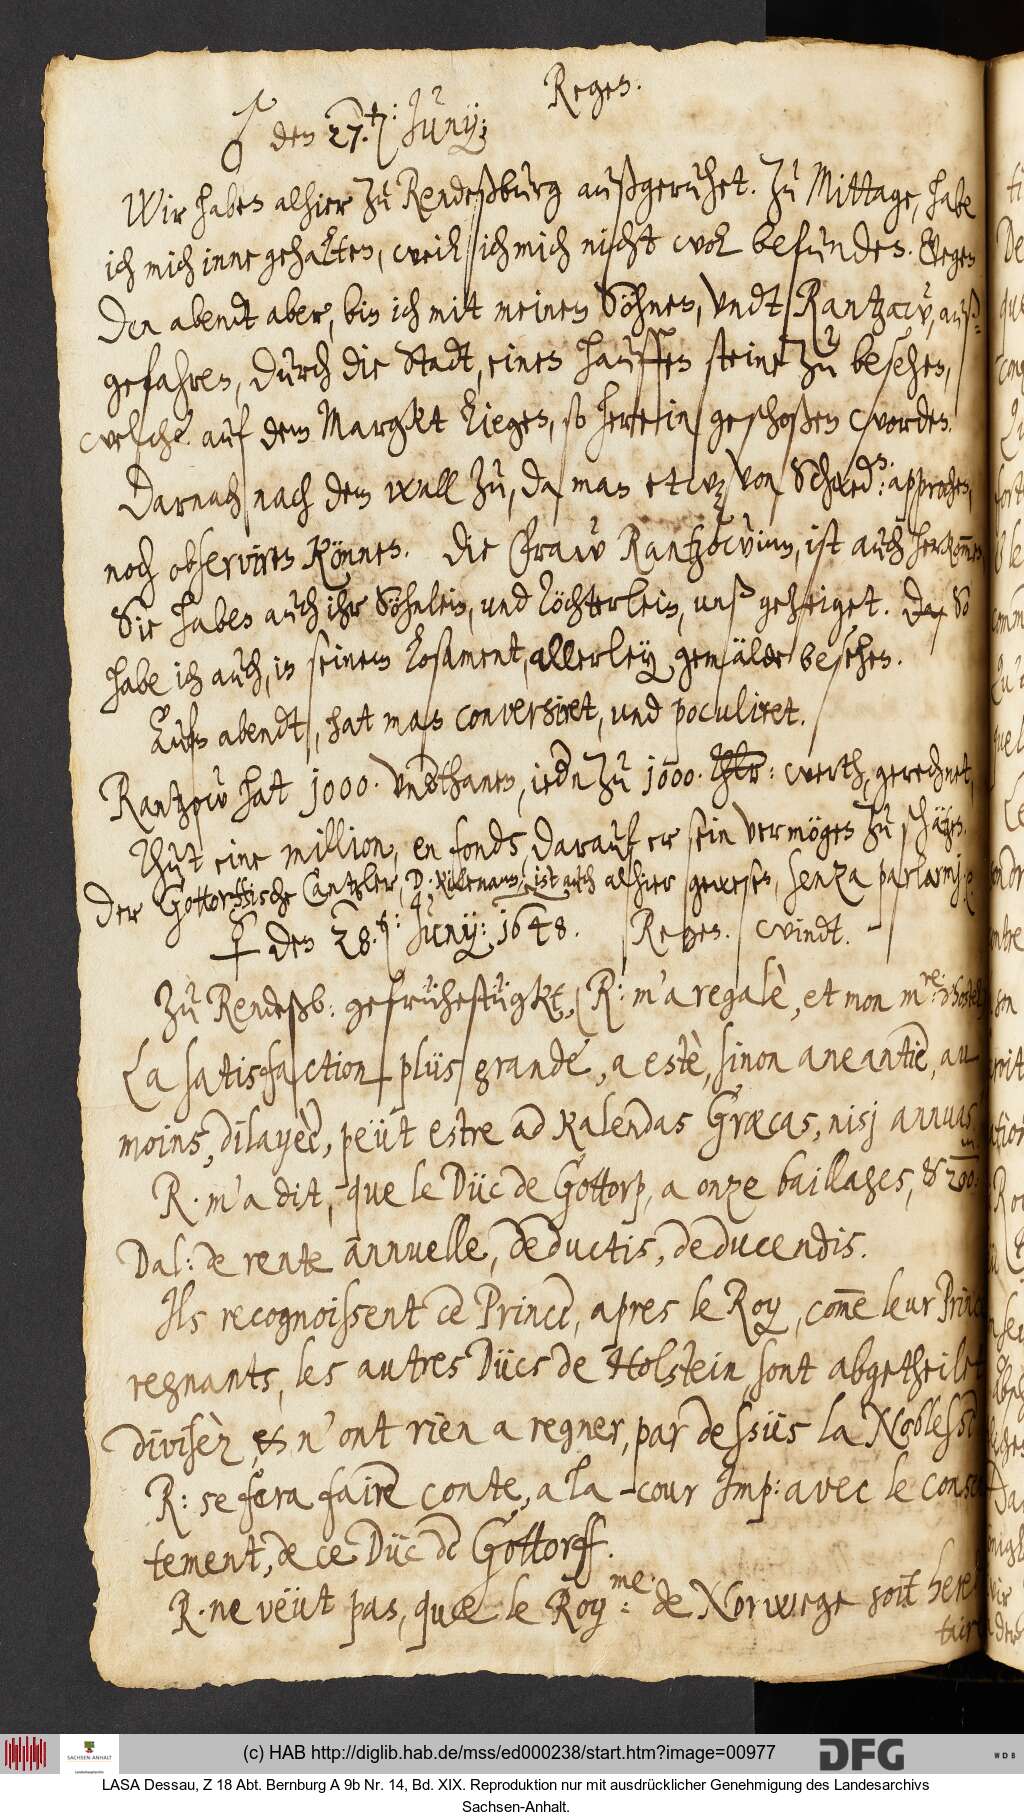 ♂ den 27.ten: Junÿ: Regen.
Wir haben alhier zu Rendeßburg außgeruhet. Zu Mittage, habe
ich mich inne gehalten, weil ich mich nicht wol befunden. Gegen
den abendt aber, bin ich mit meinen Söhnen, undt Rantzaw, auß¬
gefahren, durch die Stadt, einen hauffen steine zu besehen,
welche auf dem Margkt liegen, so herein geschoßen worden.
Darnach nach dem wall zu, da man etwz von Schwed:en approchen,
noch observiren können. Die Fraw Rantzowinn, ist auch herkom̅en,
Sie haben auch ihr Söhnlein, und Töchterlein, unß gezeiget. Da
habe ich auch, in seinem Losament, allerley gemälde besehen.
Aufn abendt, hat man conversiret, und poculiret.
Rantzow hat 1000. Undthanen, iedn zu 1000. Thlr: werth, gerechnet,
thut eine million, en fonds, darauf er sein vermögen zu schätzen.
Der Gottorffische Cantzler, D: Kielmann, ist auch alhier gewesen, senza parlarmj.
♀ den 28.ten: Junÿ: 1648. Regen. windt.
Zu Rendeßb: gefrühestügkt, (R: m'a regalè, et mon mre: d'hostel)
La satisfaction plüs grande, a estè, sinon aneantie, au
moins, dilayèe, peüt estre ad Kalendas Græcas, nisj annuas
R. m'a dit, que le Düc de Gottorp, a onze baillages, & 200m:
Dal: de rente annuelle, deductis, deducendis.
Ils recognoissent ce Prince, apres le Roy, com̅e leur Princ
regnants, les autres Dücs de Holstein, sont abgetheilet
divisèz et n'ont rien a regner, par dessüs la Noblesse
R: se fera faire conte, a la cour Imp: avec le consen
tement, de ce Düc de Gottorff.
R. ne veüt pas, que le Roy:me. de Norwege soit here
taire
(c) HAB http://diglib.hab.de/mss/ed000238/start.htm?image=00977
SACHSEN-ANHALT
DFG
WDB
LASA Dessau, Z 18 Abt. Bernburg A 9b Nr. 14, Bd. XIX. Reproduktion nur mit ausdrücklicher Genehmigung des Landesarchivs
Sachsen-Anhalt.